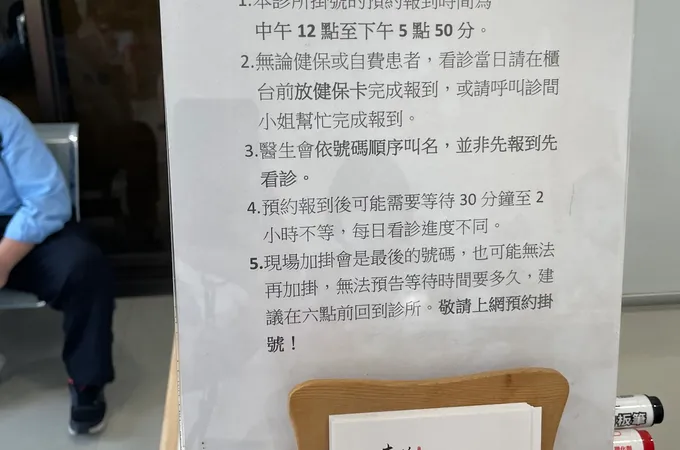 1.本診所掛號的預約報到時間為
中午 12 點至下午 5 點 50 分。
2.無論健保或自費患者，看診當日請在櫃
台前放健保卡完成報到，或請呼叫診間
小姐幫忙完成報到。
3.醫生會依號碼順序叫名，並非先報到先
看診。
4.預約報到後可能需要等待 30 分鐘至 2
小時不等，每日看診進度不同。
5.現場加掛會是最後的號碼，也可能無法
再加掛，無法預告等待時間要多久，建
議在六點前回到診所。敬請上網預約掛
號！
板筆